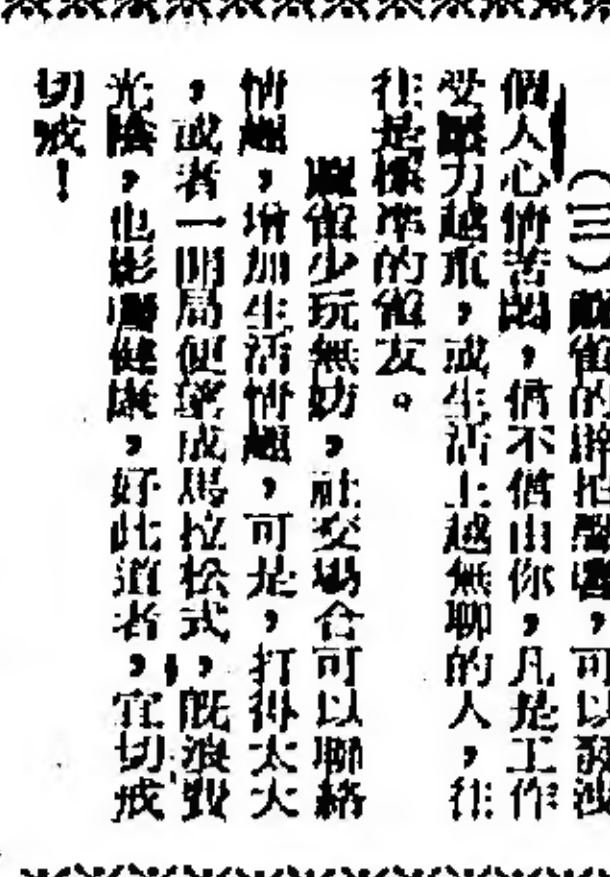 （三）麻雀的辟拍聲響，可以發洩
個人心情苦悶，信不信由你，凡是工作
受壓力越重，或生活上越無聊的人，往
往是標準的雀友。
麻雀少玩無妨，社交場合可以聯絡
情趣，增加生活情趣，可是，打得太大
，或者一開局便變成馬拉松式，既浪費
光陰，也影響健康，好此道者，宜切戒
切戒！